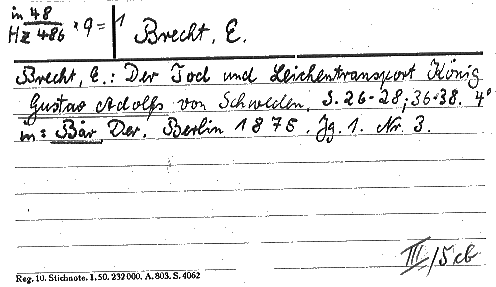 in 48
Hz 486 * 9 = 1 Brecht, E.
Brecht, E.: Der Tod und Leichentransport König
Gustav Adolfs von Schweden. S. 26-28; 36-38. 4°
in: Bär Der. Berlin 1875. Jg. 1. Nr. 3.
III/5cb
Reg. 10. Stichnote. 1. 50. 232 000. A. 803. S. 4062